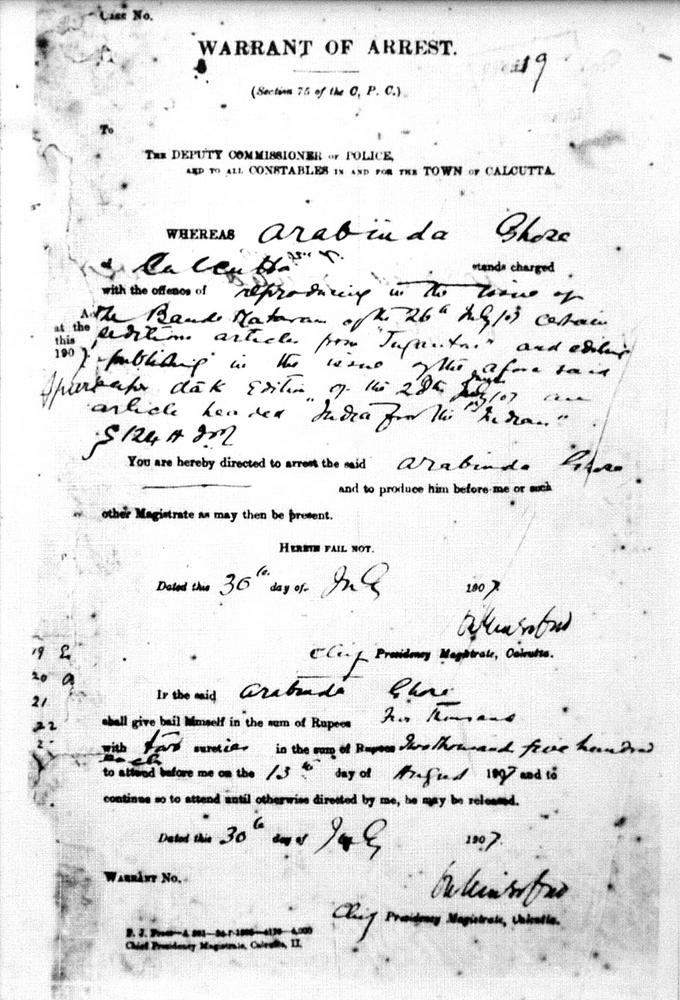 Case No.
WARRANT OF ARREST.
19
(Section 75 of the C. P. C.)
To
THE DEPUTY COMMISSIONER OF POLICE,
AND TO ALL CONSTABLES IN AND FOR THE TOWN OF CALCUTTA.
WHEREAS Arabinda Ghose
of Calcutta stands charged
with the offence of reproducing in the issue of
the Bande Mataram of the 26th July/07 certain
at the seditious articles from "Jugantar" and
this publishing in the issue of the aforesaid
190 paper dak Edition of the 28th July/07 an
article headed "India for the Indian"
S 124 A
You are hereby directed to arrest the said Arabinda Ghose
and to produce him before me or such
other Magistrate as may then be present.
HEREIN FAIL NOT.
Dated this 30th day of July 1907.
Chief Presidency Magistrate, Calcutta.
19
20
21
22
If the said Arabinda Ghose
shall give bail himself in the sum of Rupees Thousand
with two sureties in the sum of Rupees Two thousand five hundred
each
to attend before me on the 13th day of August 1907 and to
continue so to attend until otherwise directed by me, he may be released.
Dated this 30th day of July 1907.
WARRANT No.
Chief Presidency Magistrate, Calcutta.
Chief Presidency Magistrate, Calcutta, II.